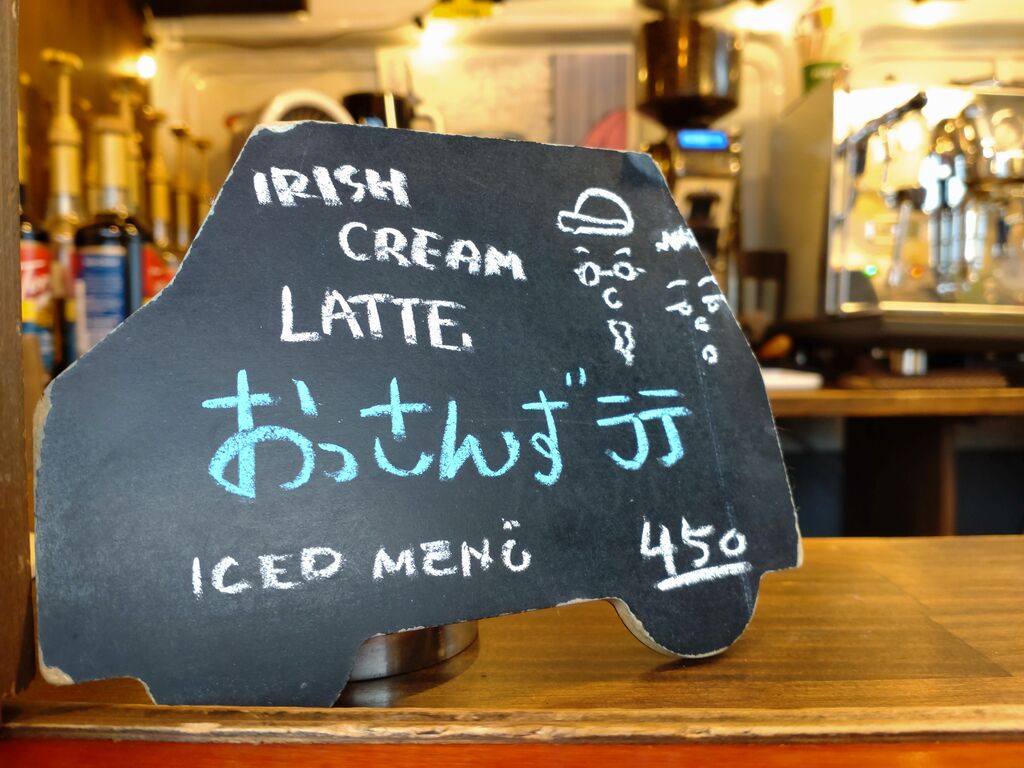 IRISH
CREAM
LATTE
おっさんずラテ
ICED MENU
450